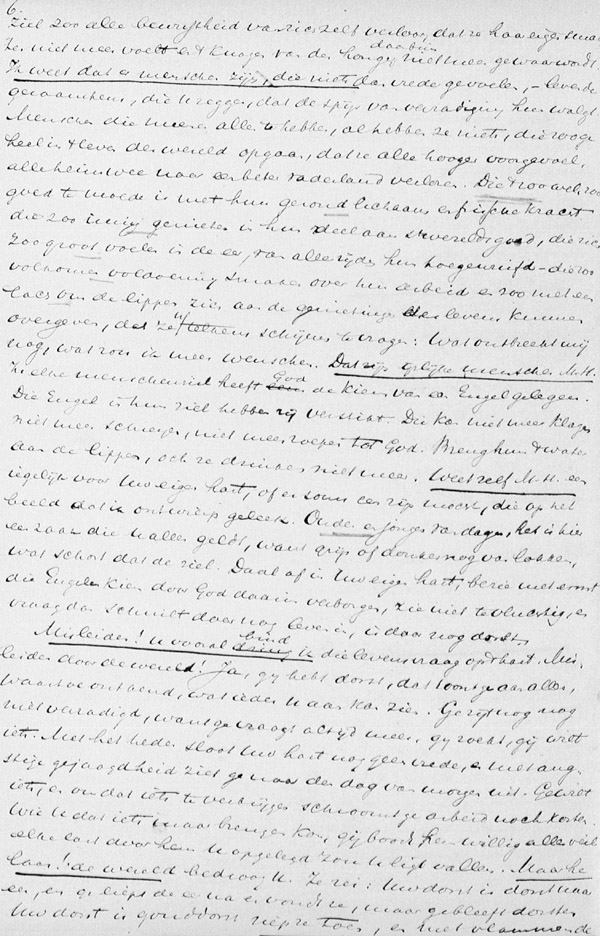 6.
ziel zoo alle bewustheid van zichzelf verloor, dat ze haar eigen smart
Ze niet meer voelt en 't knagen van den honger daarbij niet meer gewaar wordt.
Ik weet dat er menschen zijn, die niets dan vrede gevoelen, – levende
geraamten, die u zeggen, dat de spijs van verzadiging hun walgt.
Menschen die meenen alles te hebben, al hebben ze niets, die zoo ge-
heel in 't leven der wereld opgaan, dat ze alle hooger voorgevoel,
alle heimwee naar een beter vaderland verloren. Die 't zoo wel, zoo
goed te moede is met hun gezond lichaam en frissche kracht
die zoo innig genieten in hun deel aan 's werelds goed, die zich
zoo groot voelen in de eer, van alle zijden hun toegewuifd – die zoo
volkomen voldoening smaken over hun arbeid en zoo met een
lach om de lippen zich aan de genietingen des levens kunnen
overgeven, dat ze u telkens schijnen te vragen: Wat ontbreekt mij
nog, wat zou ik meer wenschen. Dat zijn gelijke menschen M.H.
In elke menschenziel heeft God de kiem van een Engel gelegen.
Die Engel in hun ziel hebben zij verstikt. Die kan niet meer klagen
niet meer schreien, niet meer roepen tot God. Breng hun 't water
aan de lippen, och ze drinken niet meer. Weet zelf M.H. een
iegelijk voor Uw eigen hart, of er soms een zijn moest, die op het
beeld dat ik ontwierp geleek. Ouden en jongen van dagen, het is hier
een zaak die u allen geldt, want grijs of donker nog van lokken,
wat schort dat de ziel. Daal af in Uw eigen hart, bezie met ernst
die Engelenkiem door God daarin verborgen, zie niet te vluchtig, en
vraag dan schuilt daar nog leven in, is daar nog dorst.
Misleiden! u vooral bind ik die levensvraag op 't hart. Mis-
leiden door de wereld! Ja, gij hebt dorst, dat toont ge aan alles,
waartoe ontkend, wat ieder U aan kan zien. Ge zijt nog nog
niet verzadigd, want ge vraagt altijd meer, gij zoekt, gij wroet
iets. Met het heden sloot Uw hart nog geen vrede, en met ang-
stige gejaagdheid ziet ge naar den dag van morgen uit. Ge wilt
iets, en om dat iets te verkrijgen schroomt ge arbeid noch kosten.
Wie U dat iets maar brengen kon, gij boodt hem willig alles veil
elke last door hem U opgelegd zou U ligt vallen. Maar he-
laas! de wereld bedroog U. Ze zei: Uw dorst is dorst naar
eer, en ge liept de eer na en vondt ze, maar ge bleeft dorsten
Uw dorst is gouddorst riep ze toen, en met vlammende